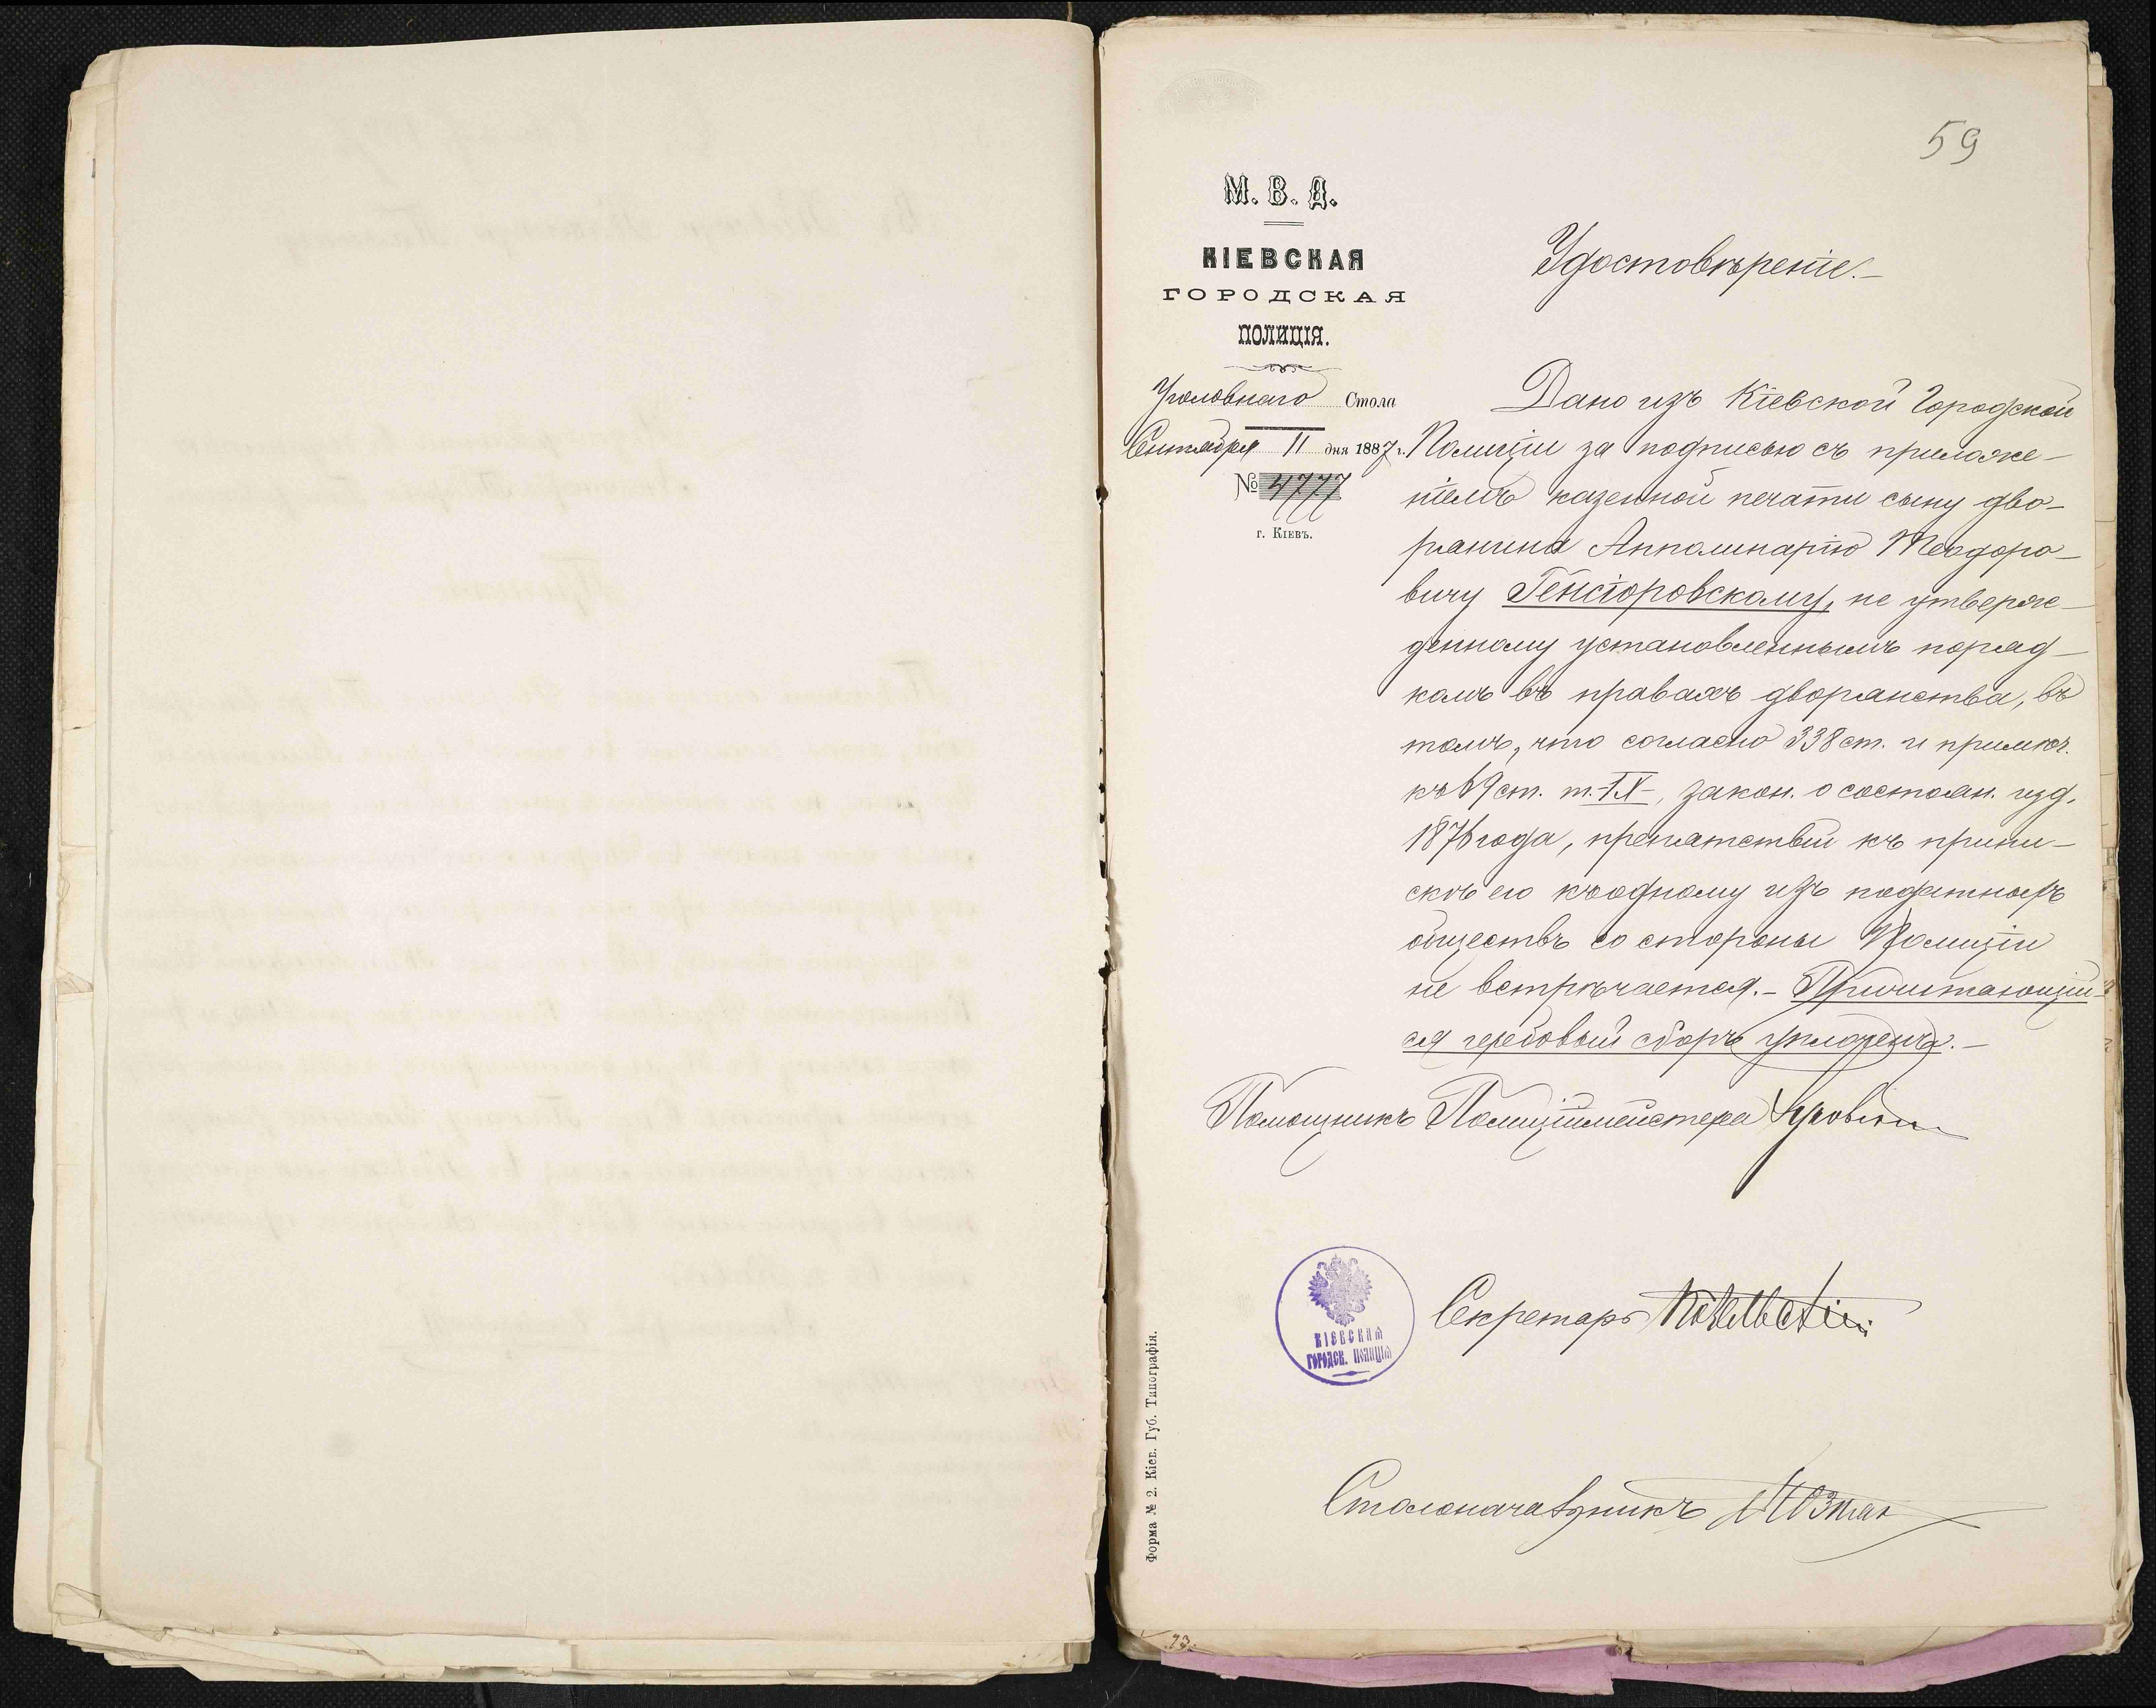 59
М. В. Д.
КІЕВСКАЯ
ГОРОДСКАЯ
ПОЛИЦІЯ.
Уголовнаго Стола
Сентября 11 дня 1887 г.
№ 4777
г. Кіевъ.
Удостовѣреніе.–
Дано изъ Кіевской Городской
Полиціи за подписью съ приложе-
ніемъ казенной печати сыну дво-
рянина Апполинарію Теодоро-
вичу Генсіоровскому, не утверж-
денному установленнымъ поряд-
комъ въ правахъ дворянства, въ
томъ, что согласно 338 ст. и примѣч.
къ 69 ст. т. IX, закон. о состоян. изд.
1876 года, препятствій къ припи-
скѣ его къ одному изъ податныхъ
обществъ со стороны Полиціи
не встрѣчается.– Причитающій-
ся гербовый сборъ уплоченъ.–
Помощникъ Полиціймейстера
КІЕВСКАЯ
ГОРОДСК. ПОЛИЦІЯ
Секретарь
Столоначальникъ
Форма № 2. Кіев. Губ. Типографія.
73.